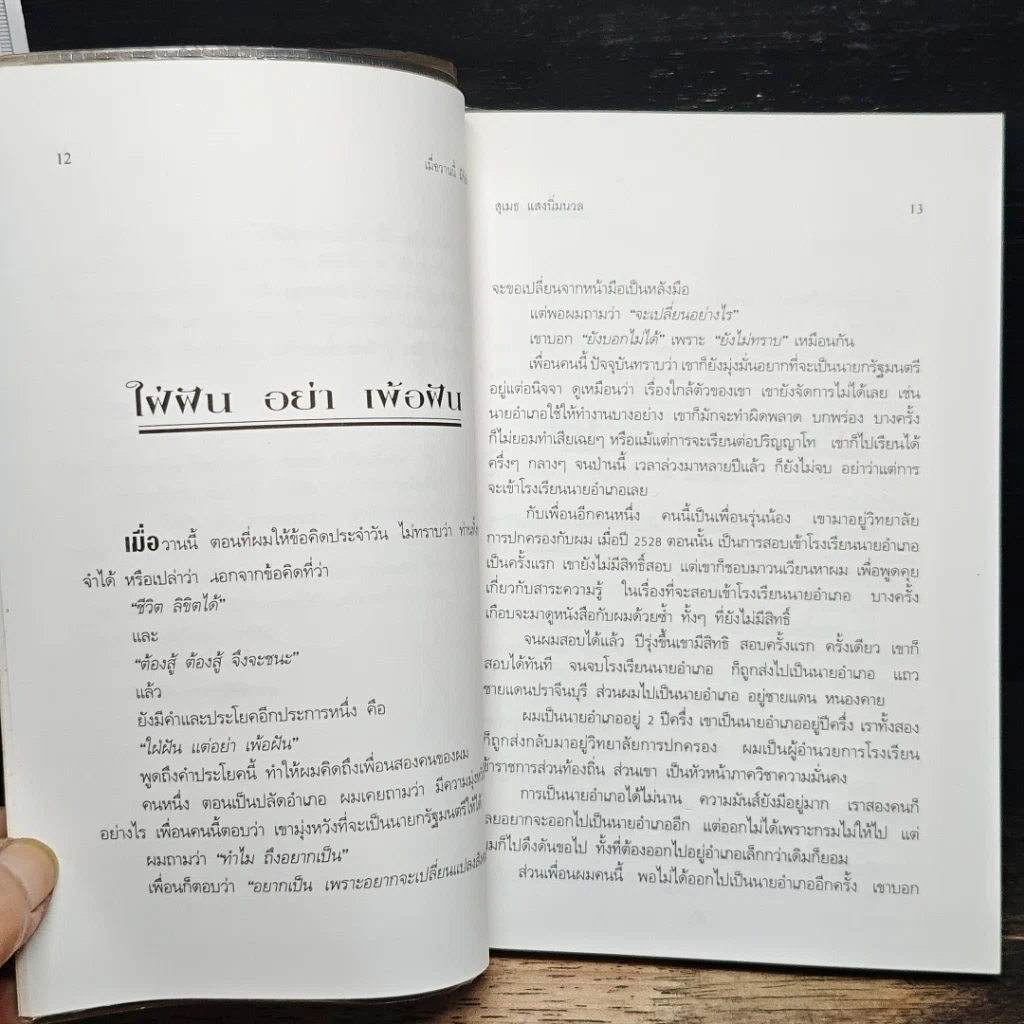 12
เมื่อวานนี้
ใฝ่ฝัน อย่า เพ้อฝัน
เมื่อวานนี้ ตอนที่ผมให้ข้อคิดประจำวัน ไม่ทราบว่า
จำได้ หรือเปล่าว่า นอกจากข้อคิดที่ว่า
“ชีวิต ลิขิตได้”
และ
“ต้องสู้ ต้องสู้ จึงจะชนะ”
แล้ว
ยังมีคำและประโยคอีกประการหนึ่ง คือ
“ใฝ่ฝัน แต่อย่า เพ้อฝัน”
พูดถึงคำประโยคนี้ ทำให้ผมคิดถึงเพื่อนสองคนของผม
คนหนึ่ง ตอนเป็นปลัดอำเภอ ผมเคยถามว่า มีความมุ่งหวัง
อย่างไร เพื่อนคนนี้ตอบว่า เขามุ่งหวังที่จะเป็นนายกรัฐมนตรีให้ได้
ผมถามว่า “ทำไม ถึงอยากเป็น”
เพื่อนก็ตอบว่า “อยากเป็น เพราะอยากจะเปลี่ยนแปลง
สุเมธ แสงนิ่มนวล
13
จะขอเปลี่ยนจากหน้ามือเป็นหลังมือ
แต่พอผมถามว่า “จะเปลี่ยนอย่างไร”
เขาบอก “ยังบอกไม่ได้” เพราะ “ยังไม่ทราบ” เหมือนกัน
เพื่อนคนนี้ ปัจจุบันทราบว่า เขาก็ยังมุ่งมั่นอยากที่จะเป็นนายกรัฐมนตรี
อยู่แต่อนิจจา ดูเหมือนว่า เรื่องใกล้ตัวของเขา เขายังจัดการไม่ได้เลย เช่น
นายอำเภอใช้ให้ทำงานบางอย่าง เขาก็มักจะทำผิดพลาด บกพร่อง บางครั้ง
ก็ไม่ยอมทำเสียเฉยๆ หรือแม้แต่การจะเรียนต่อปริญญาโท เขาก็ไปเรียนได้
ครึ่งๆ กลางๆ จนป่านนี้ เวลาล่วงมาหลายปีแล้ว ก็ยังไม่จบ อย่าว่าแต่การ
จะเข้าโรงเรียนนายอำเภอเลย
กับเพื่อนอีกคนหนึ่ง คนนี้เป็นเพื่อนรุ่นน้อง เขามาอยู่วิทยาลัย
การปกครองกับผม เมื่อปี 2528 ตอนนั้น เป็นการสอบเข้าโรงเรียนนายอำเภอ
เป็นครั้งแรก เขายังไม่มีสิทธิ์สอบ แต่เขาก็ชอบมาวนเวียนหาผม เพื่อพูดคุย
เกี่ยวกับสาระความรู้ ในเรื่องที่จะสอบเข้าโรงเรียนนายอำเภอ บางครั้ง
เกือบจะมาดูหนังสือกับผมด้วยซ้ำ ทั้งๆ ที่ยังไม่มีสิทธิ์
จนผมสอบได้แล้ว ปีรุ่งขึ้นเขามีสิทธิ สอบครั้งแรก ครั้งเดียว เขาก็
สอบได้ทันที จนจบโรงเรียนนายอำเภอ ก็ถูกส่งไปเป็นนายอำเภอ แถว
ชายแดนปราจีนบุรี ส่วนผมไปเป็นนายอำเภอ อยู่ชายแดน หนองคาย
ผมเป็นนายอำเภออยู่ 2 ปีครึ่ง เขาเป็นนายอำเภออยู่ปีครึ่ง เราทั้งสอง
ก็ถูกส่งกลับมาอยู่วิทยาลัยการปกครอง ผมเป็นผู้อำนวยการโรงเรียน
ข้าราชการส่วนท้องถิ่น ส่วนเขา เป็นหัวหน้าภาควิชาความมั่นคง
การเป็นนายอำเภอได้ไม่นาน ความมันส์ยังมีอยู่มาก เราสองคนก็
เลยอยากจะออกไปเป็นนายอำเภออีก แต่ออกไม่ได้เพราะกรมไม่ให้ไป แต่
ผมก็ไปดึงดันขอไป ทั้งที่ต้องออกไปอยู่อำเภอเล็กกว่าเดิมก็ยอม
ส่วนเพื่อนผมคนนี้ พอไม่ได้ออกไปเป็นนายอำเภออีกครั้ง เขาบอก